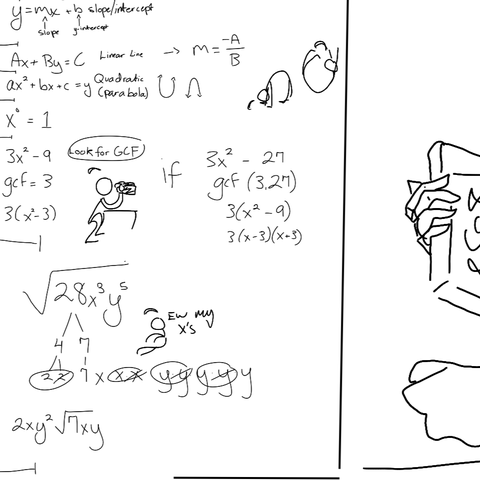 y = mx + b slope/intercept
slope y-intercept
Ax + By = C Linear Line → m = -A/B
ax² + bx + c = y Quadratic (parabola)
x⁰ = 1
3x² - 9 Look for GCF
gcf = 3
3(x² - 3)
if 3x² - 27
gcf (3, 27)
3(x² - 9)
3(x-3)(x+3)
√28x³y⁵
4 7
2·2 7 x x·x y·y y·y y
Ew my
x's
2xy²√7xy